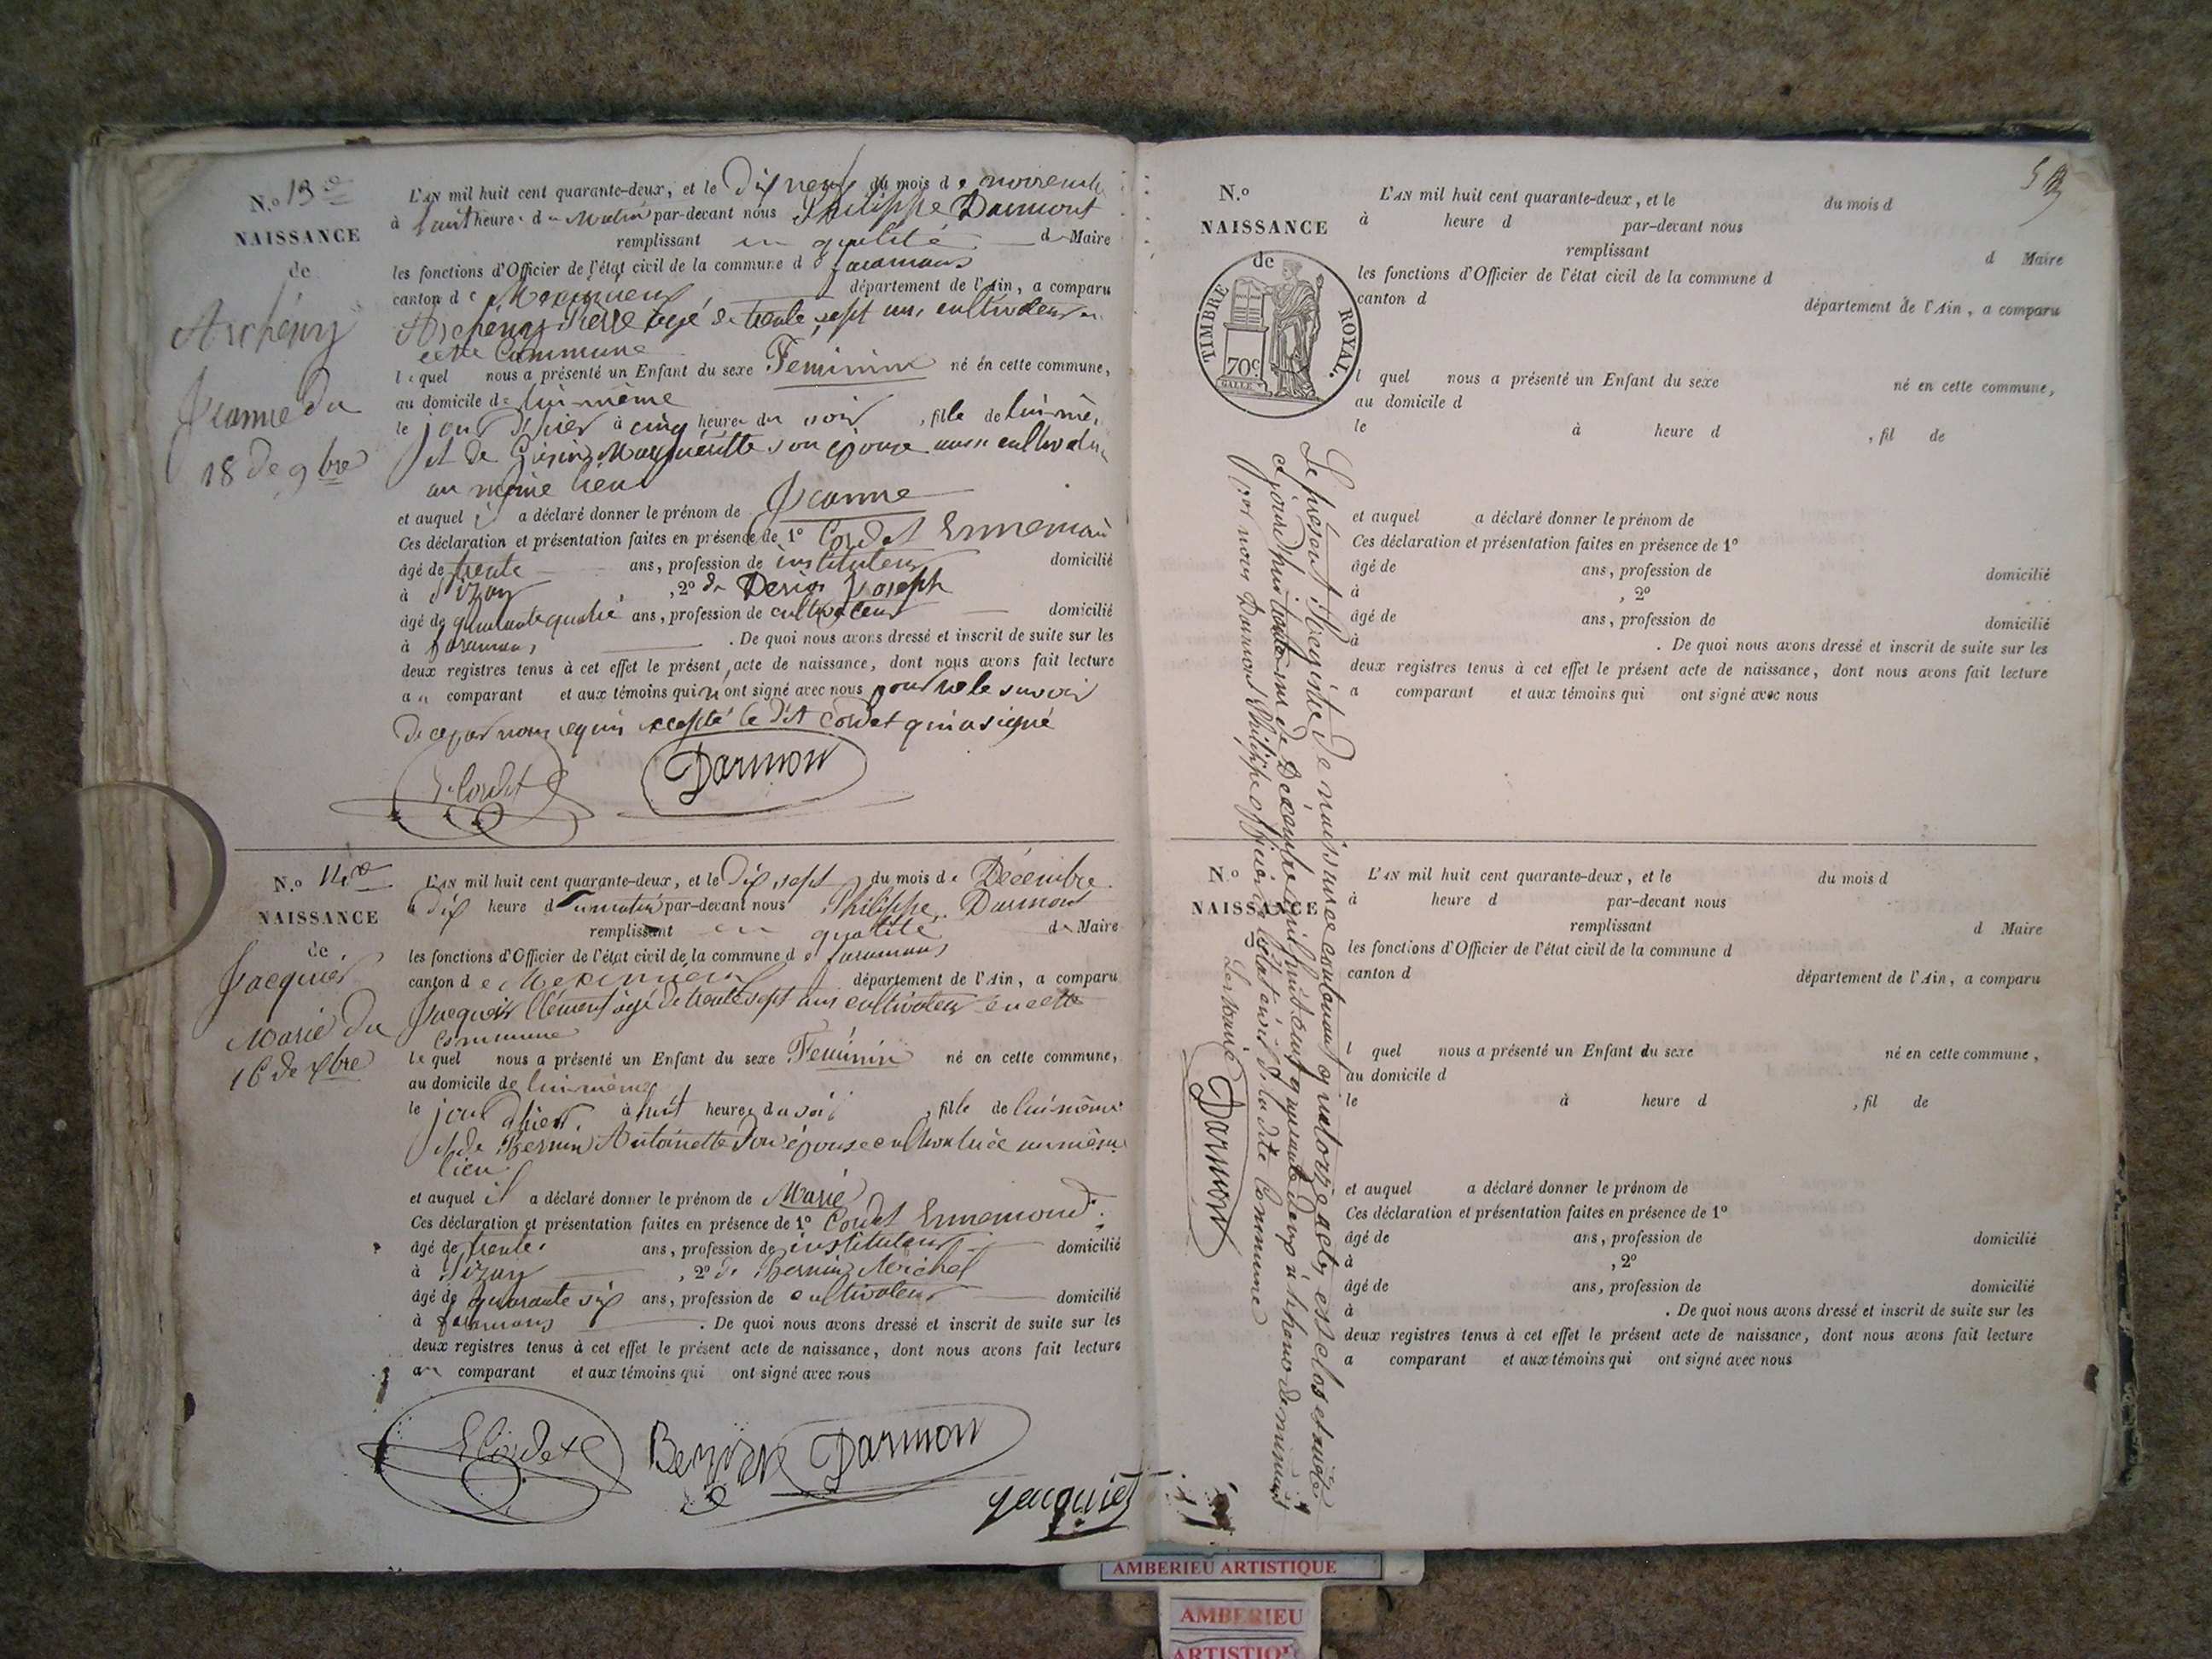 N.o 13e
NAISSANCE
de
Archény
Jeanne du
18 de 9bre
L'AN mil huit cent quarante-deux, et le Dix neuf du mois de novembre
à huit heure du Matin par-devant nous Philippe Darmont
remplissant en qualité de Maire
les fonctions d'Officier de l'état civil de la commune de faramans
canton de Meximieux département de l'Ain, a comparu
Archény Pierre agé de trente sept ans, cultivateur en
cette Commune
lequel nous a présenté un Enfant du sexe Féminin né en cette commune,
au domicile de lui-même
le jour d'hier à cinq heures du soir, fille de lui-même,
et de Marguerite son épouse aussi
au même lieu
et auquel il a déclaré donner le prénom de Jeanne
Ces déclaration et présentation faites en présence de 1° Cordet Ennemond
âgé de trente ans, profession de instituteur domicilié
à Pizay, 2° de Joseph
âgé de quarante quatre ans, profession de cultivateur domicilié
à faramans. De quoi nous avons dressé et inscrit de suite sur les
deux registres tenus à cet effet le présent acte de naissance, dont nous avons fait lecture
au comparant et aux témoins qui n ont signé avec nous pour ne le savoir
de ce par nous requis excepté le dit Cordet qui a signé
E Cordet Darmon
N.o 14e
NAISSANCE
de
Jacquier
Marie du
16 de xbre
L'AN mil huit cent quarante-deux, et le Dix sept du mois de Décembre
à Dix heure du matin par-devant nous Philippe Darmont
remplissant en qualité de Maire
les fonctions d'Officier de l'état civil de la commune de faramans
canton de Meximieux département de l'Ain, a comparu
Jacquier Clément agé de trente sept ans cultivateur en cette
Commune
lequel nous a présenté un Enfant du sexe Féminin né en cette commune,
au domicile de lui-même
le jour d'hier, à huit heures du soir, fille de lui-même
et de Bernin Antoinette son épouse cultivatrice au même
lieu
et auquel il a déclaré donner le prénom de Marie
Ces déclaration et présentation faites en présence de 1° Cordet Ennemond
âgé de trente ans, profession de instituteur domicilié
à Pizay, 2° de Bernin Michel
âgé de quarante six ans, profession de cultivateur domicilié
à faramans. De quoi nous avons dressé et inscrit de suite sur les
deux registres tenus à cet effet le présent acte de naissance, dont nous avons fait lecture
au comparant et aux témoins qui ont signé avec nous
E Cordet Darmon
Jacquier
N.o
NAISSANCE
de
TIMBRE ROYAL.
70c.
L'AN mil huit cent quarante-deux, et le du mois d
à heure d par-devant nous
remplissant d Maire
les fonctions d'Officier de l'état civil de la commune d
canton d département de l'Ain, a comparu
l quel nous a présenté un Enfant du sexe né en cette commune,
au domicile d
le à heure d , fil de
et auquel a déclaré donner le prénom de
Ces déclaration et présentation faites en présence de 1°
âgé de ans, profession de domicilié
à , 2°
âgé de ans, profession de domicilié
à . De quoi nous avons dressé et inscrit de suite sur les
deux registres tenus à cet effet le présent acte de naissance, dont nous avons fait lecture
a comparant et aux témoins qui ont signé avec nous
Le présent Registre de naissance contenant quatorze actes est clos et arrêté
ajourd'hui trente un de Décembre mil huit cent quarante deux à heure de minuit
par nous Darmont Philippe officier de l'état civil de la dite Commune
Le Maire Darmont
N.o
NAISSANCE
de
L'AN mil huit cent quarante-deux, et le du mois d
à heure d par-devant nous
remplissant d Maire
les fonctions d'Officier de l'état civil de la commune d
canton d département de l'Ain, a comparu
l quel nous a présenté un Enfant du sexe né en cette commune,
au domicile d
le à heure d , fil de
et auquel a déclaré donner le prénom de
Ces déclaration et présentation faites en présence de 1°
âgé de ans, profession de domicilié
à , 2°
âgé de ans, profession de domicilié
à . De quoi nous avons dressé et inscrit de suite sur les
deux registres tenus à cet effet le présent acte de naissance, dont nous avons fait lecture
a comparant et aux témoins qui ont signé avec nous
AMBERIEU ARTISTIQUE
AMBERIEU
ARTISTIQU